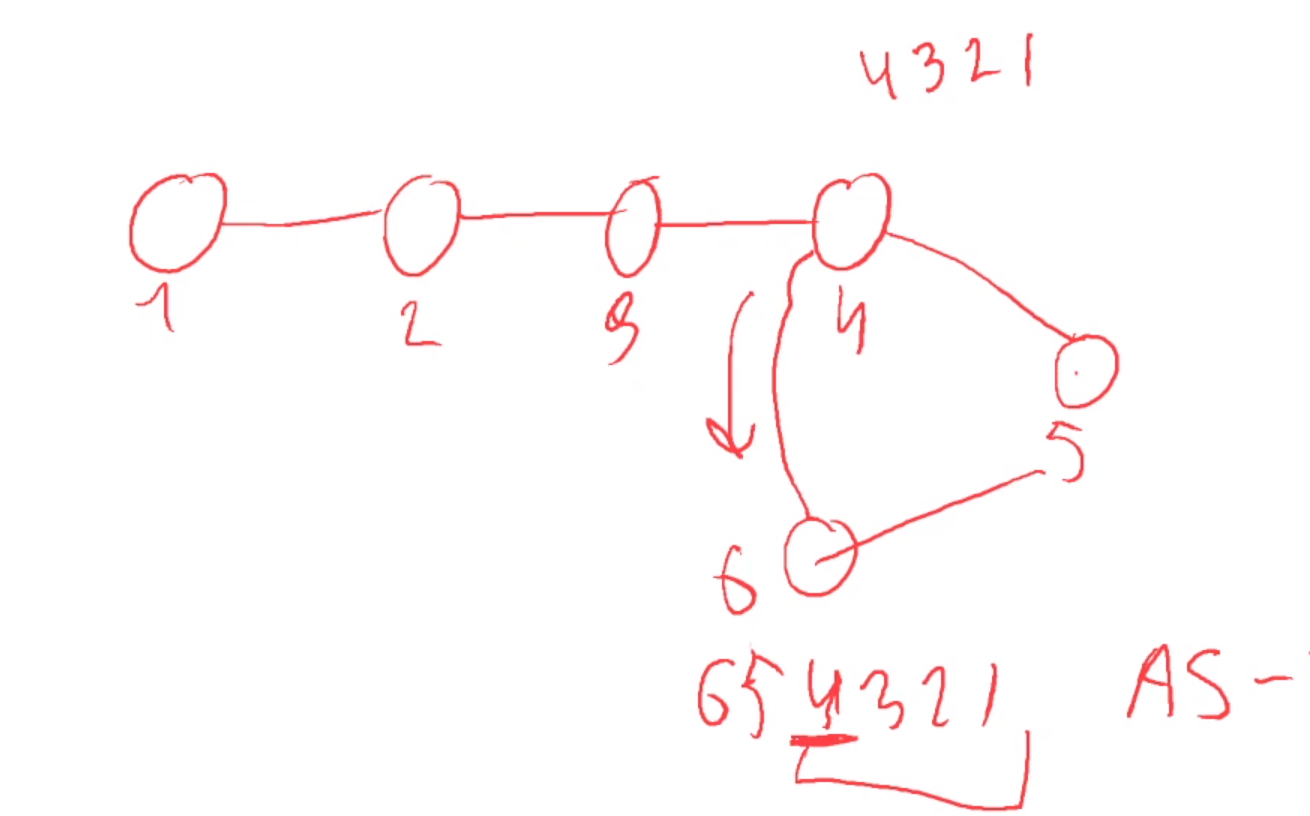 4321
1
2
3
4
5
6
654321 AS-